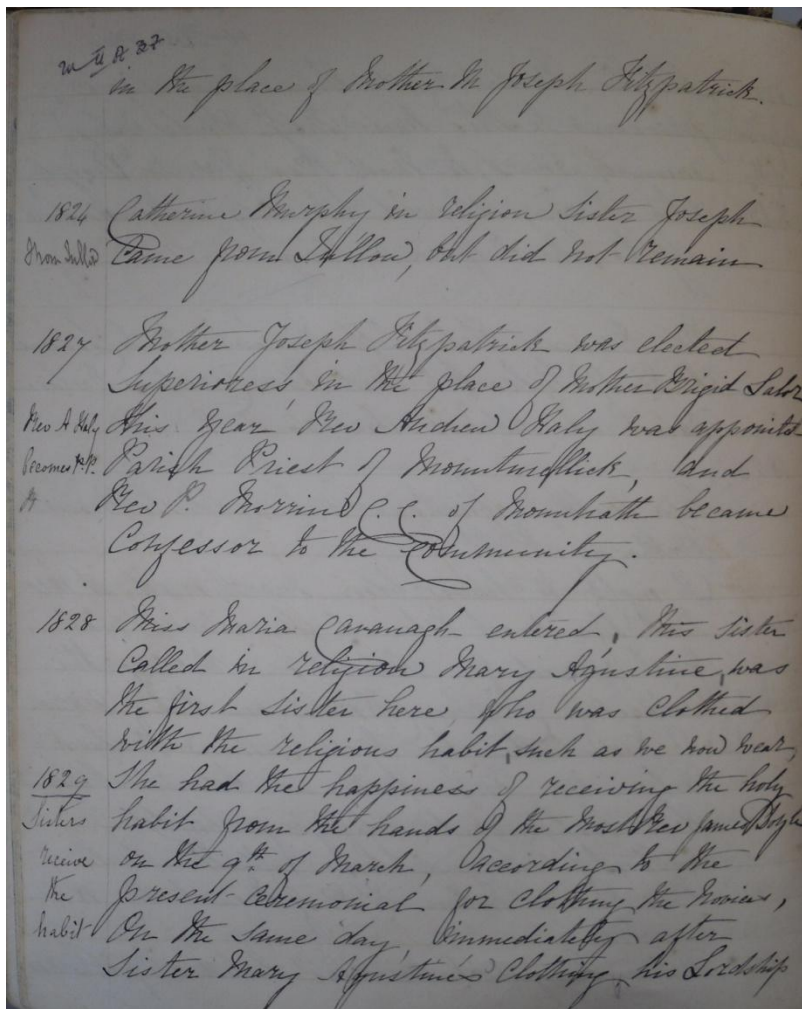 in the place of Mother M Joseph Fitzpatrick.
Catherine Murphy in religion Sister Joseph
From Tullow Came from Tullow, but did not remain
1827 Mother Joseph Fitzpatrick was elected
Superioress, in the place of Mother Brigid
Rev A Haly this year Rev Andrew Haly was appointed
becomes P.P. Parish Priest of Mountmellick, and
Rev P. C.C. of Mountrath became
Confessor to the Community.
1828 Miss Maria Cavanagh entered, this Sister
Called in religion Mary Agustine, was
the first Sister here, who was clothed
with the religious habit, such as we now wear,
1829 She had the happiness of receiving the holy
Sisters habit from the hands of the Most Rev James Doyle
receive on the 9th of March, according to the
the present ceremonial for clothing the Novices,
habit On the same day, immediately after
Sister Mary Agustine's Clothing, his Lordship